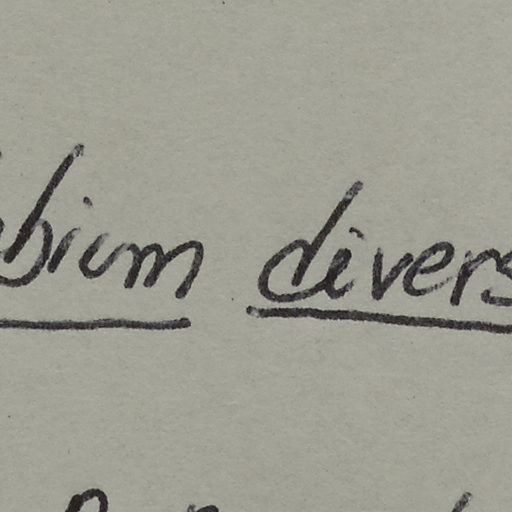 bium divers